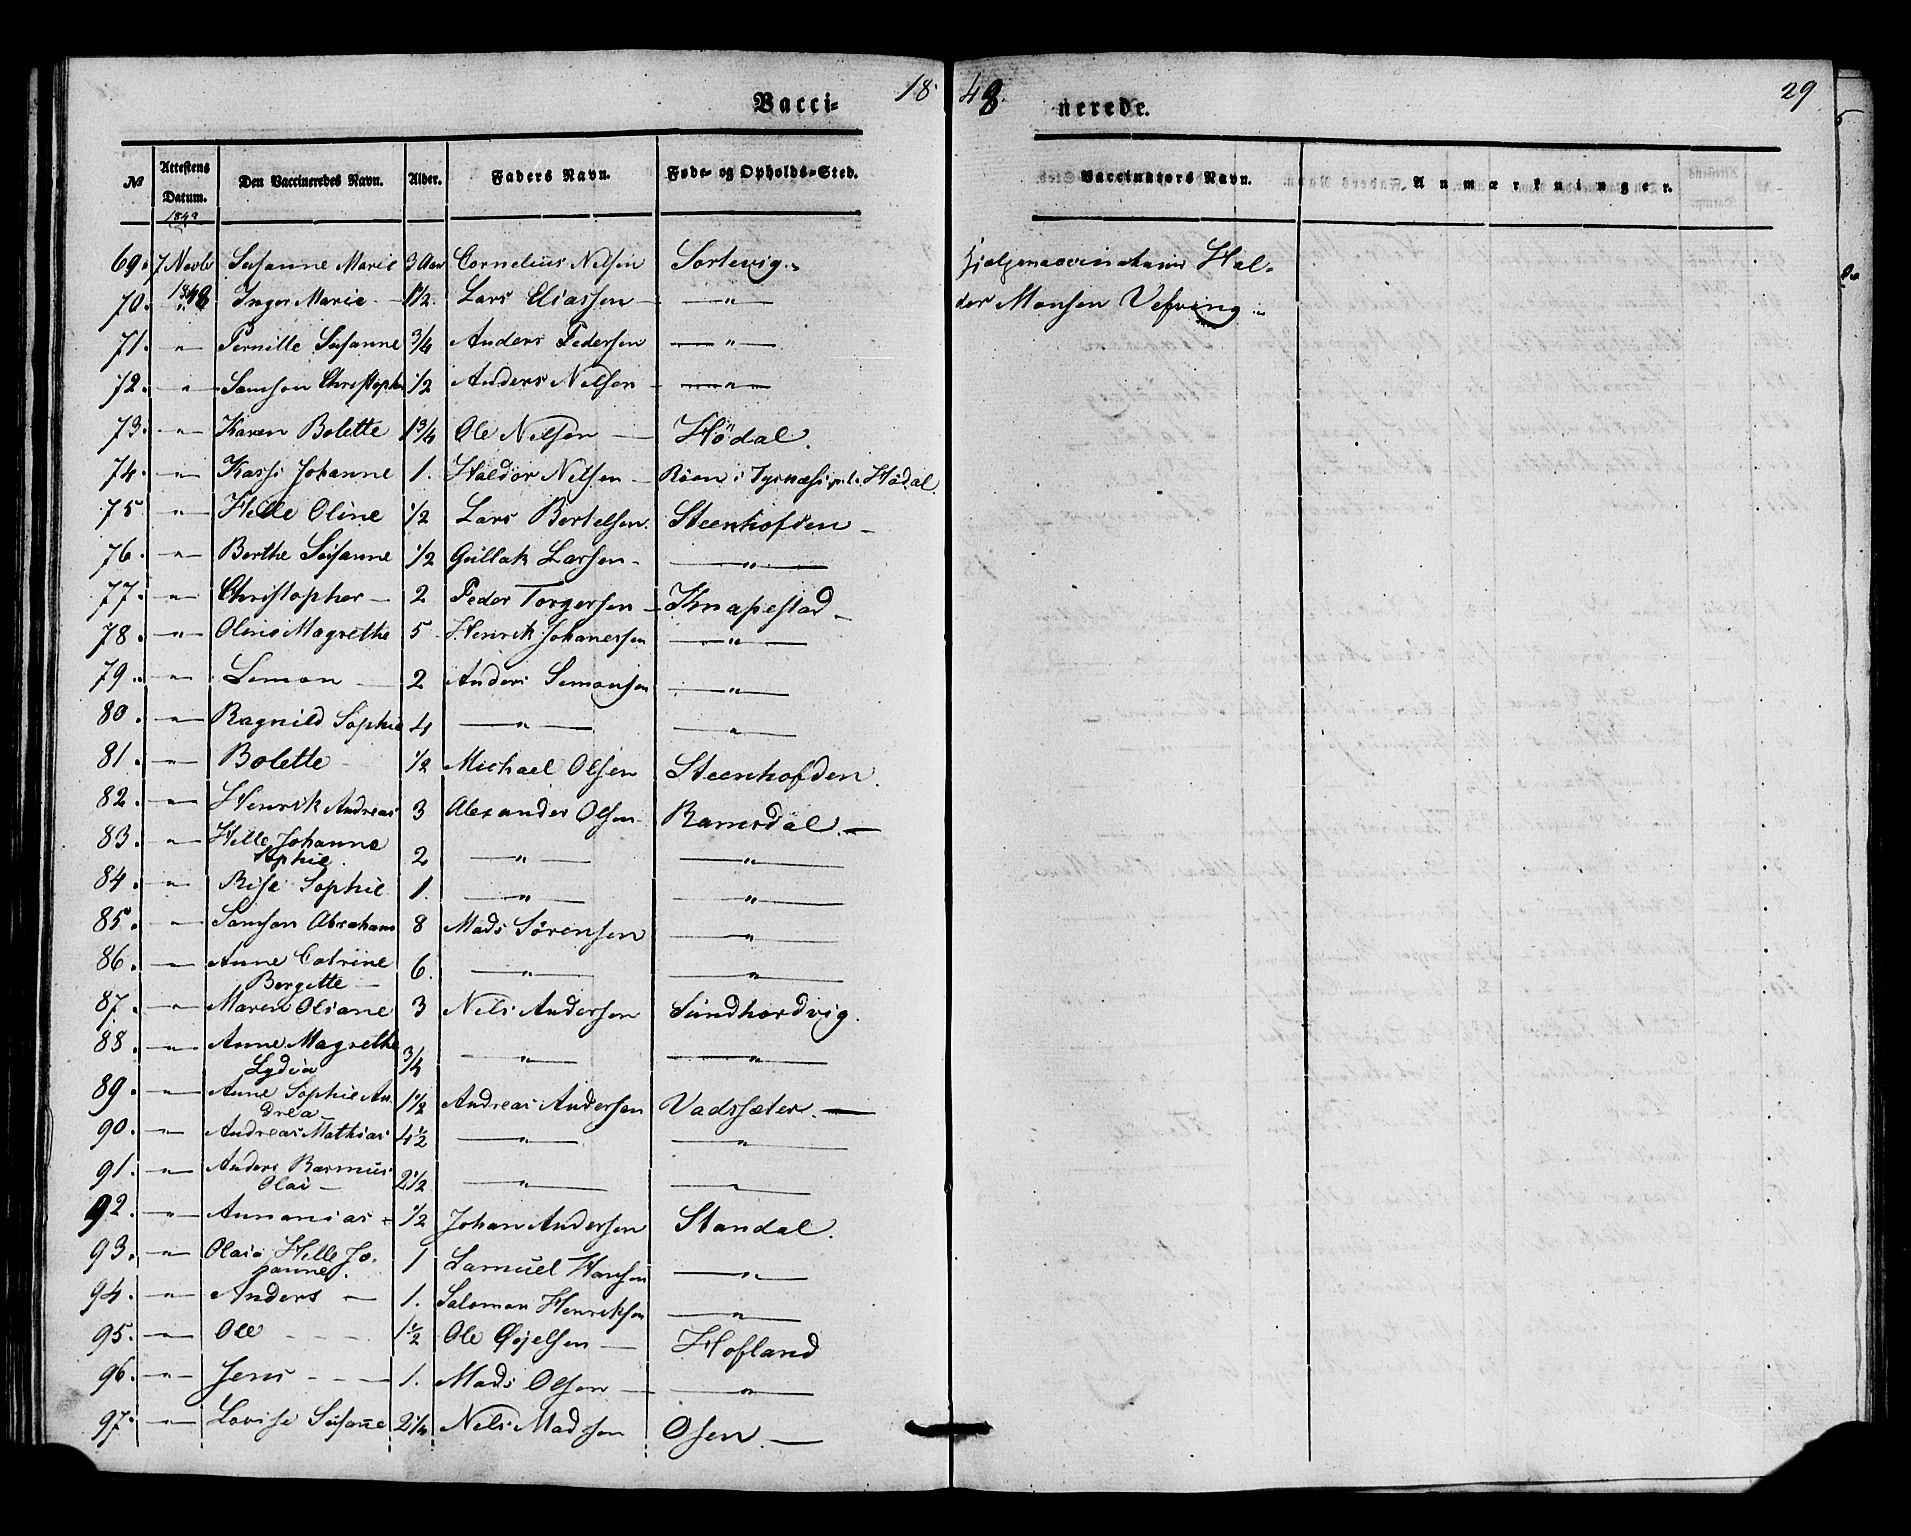 Vacci- 18 48. nerede. 29
№ | Attestens Datum. | Den Vaccineredes Navn. | Alder. | Faders Navn. | Føde- og Opholds-Sted. | Vaccinators Navn. | Anmærkninger.
69. 7 Novbr Susanne Marie 3 Aar Cornelius Nilsen Sortevig. Hjelpevaccinateur Hal-
70. 1848 Inger Marie — 1½. Lars Eliassen — " — dor Monsen Vefring
71. " Pernille Susanne ¾ Anders Pedersen — " —
72. " Samson Christopher ½ Anders Nilsen — " —
73. " Karen Bolette 1¾ Ole Nilsen — Hödal.
74. " Kassi Johanne 1. Haldor Nilsen — Hödal.
75 " Helle Oline ½ Lars Bertelsen. Steenhofden —
76. " Berthe Susanne ½ Gullak Larsen — — " —
77. " Christopher — 2 Peder Torgersen — Knapestad —
78. " Oline Magrethe 5 Henrik Johanessen — " —
79. " Semon — 2 Anders Semonsen — " —
80. " Ragnild Sophie 4 — " — — " —
81. " Bolette ½ Michael Olsen Steenhofden.
82. " Henrik Andreas 3 Alexander Olsen Ramsdal. —
83. " Helle Johanne
Sophie. 2 — " — — " —
84. " Rise Sophie 1. — " — — " —
85. " Samson Abraham 8 Mads Sørensen — " —
86. " Anne Catrine
Bergitte — 6. — " — — " —
87. " Maren Oliane 3 Nils Andersen Sundhordvig.
88. " Anne Magrethe
Lydia ¾ — " — — " —
89. " Anne Sophie An-
drea 1½ Andreas Andersen Vadsæter. —
90. " Andreas Mathias 4½ — " — — " —
91. " Anders Rasmus
Olai — 2½ — " — — " —
92. " Annanias ½ Johan Andersen Standal.
93. " Olaia Helle Jo-
hanne. 1 Samuel Hansen — " —
94. " Anders — 1. Salomon Henriksen — " —
95. " Ole — 1½ Ole Gjelsen — Hofland
96. " Jens — 1. Mads Olsen — — " —
97. " Lovise Susane 2¼ Nels Madssen Osen. —